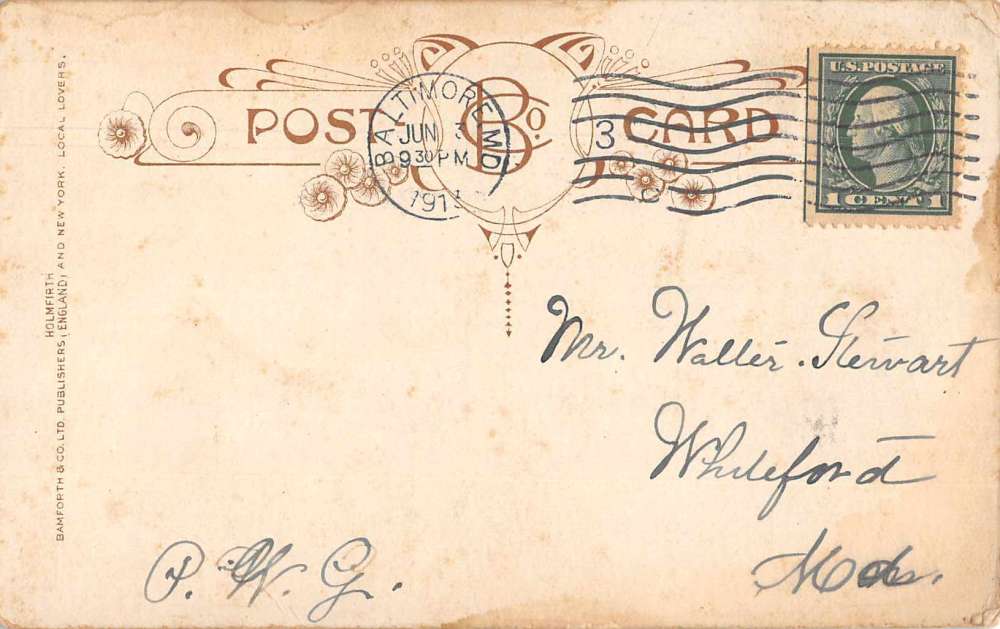 POST CARD
B Co.
BALTIMORE, MD
JUN 3
9 30 PM
191
3
C
U.S. POSTAGE
1 CENT 1
HOLMFIRTH
BAMFORTH & CO. LTD. PUBLISHERS (ENGLAND) AND NEW YORK. LOCAL LOVERS.
Mr. Walter. Stewart
Whiteford
P. W. G.